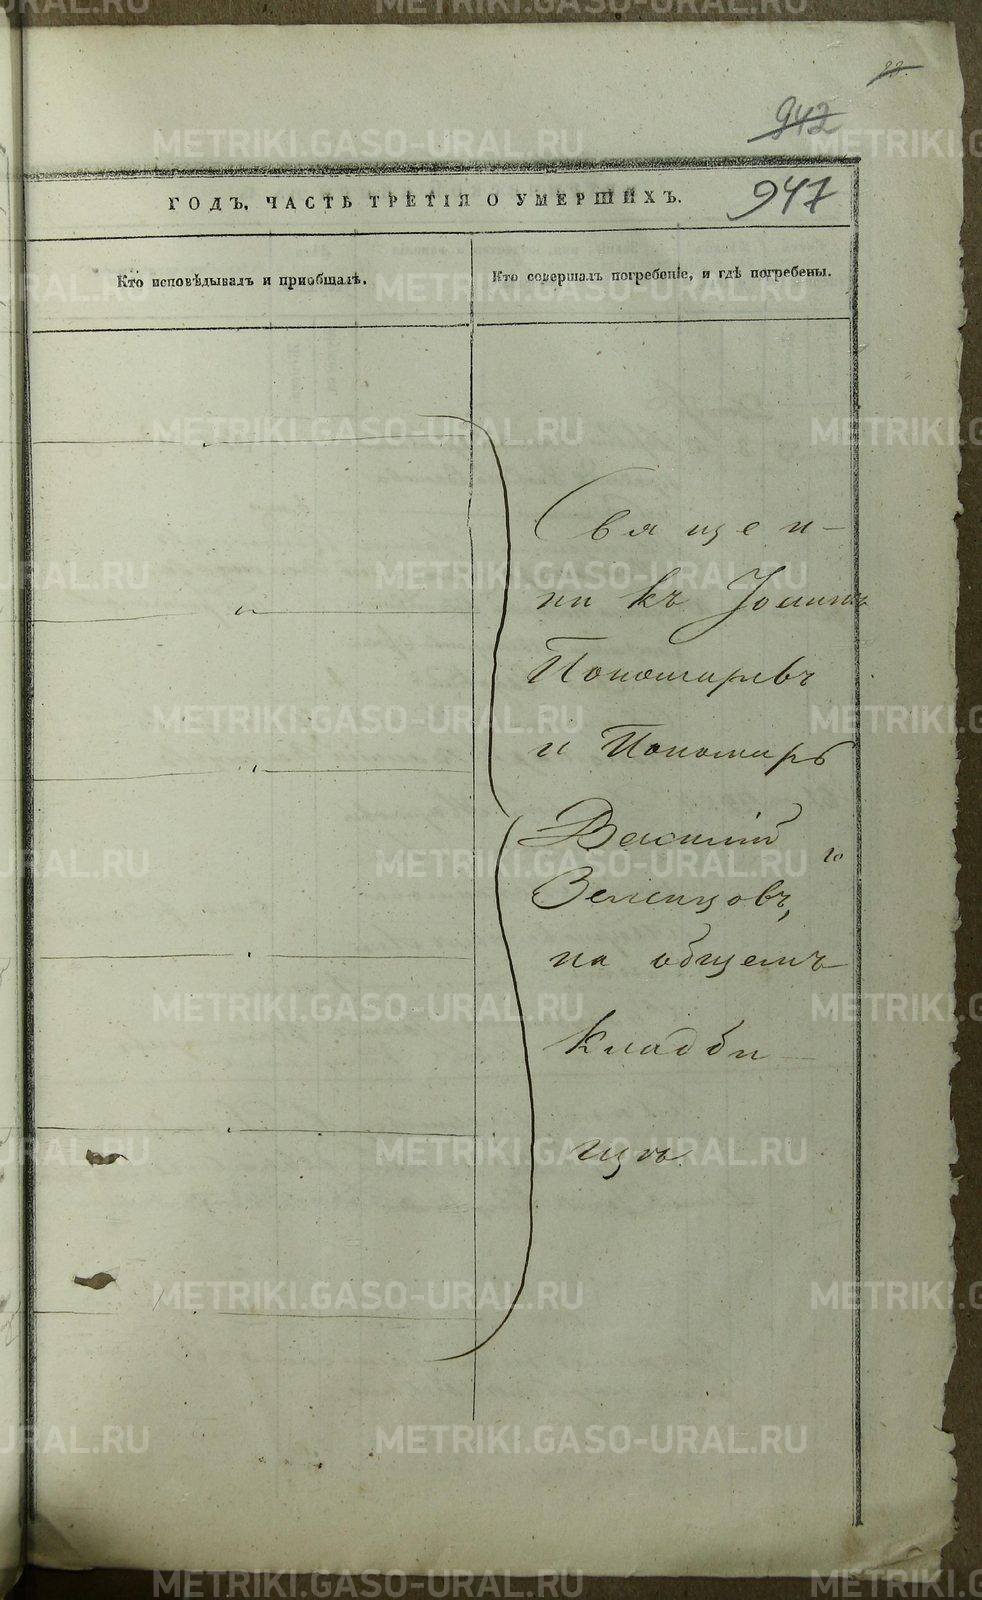 942
947
ГОДЪ, ЧАСТЬ ТРЕТІЯ О УМЕРШИХЪ.
Кто исповѣдывалъ и приобщалъ.
Кто совершалъ погребеніе, и гдѣ погребены.
Священ-
никъ Іоаннъ
Пономаревъ
и Пономарь
Василій
Зеленцовъ,
на общемъ
кладби-
щѣ.
METRIKI.GASO-URAL.RU